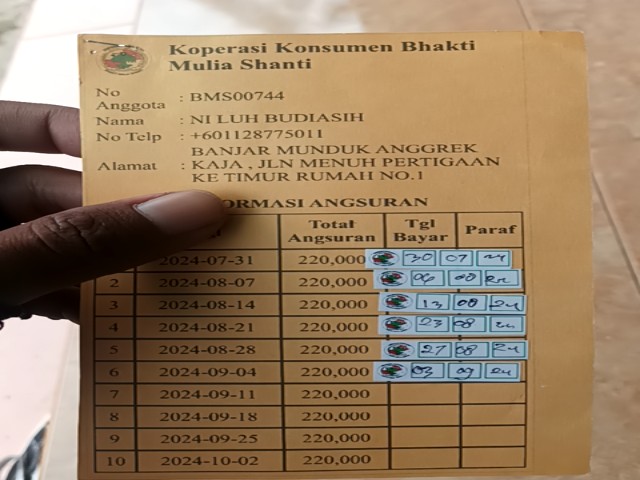 Koperasi Konsumen Bhakti
Mulia Shanti
No Anggota : BMS00744
Nama : NI LUH BUDIASIH
No Telp : +601128775011
Alamat : BANJAR MUNDUK ANGGREK
KAJA , JLN MENUH PERTIGAAN
KE TIMUR RUMAH NO.1
ANGSURAN
Total Angsuran Tgl Bayar Paraf
2024-07-31 220,000 30 07 24
2 2024-08-07 220,000 06 08 24
3 2024-08-14 220,000 13 08 24
4 2024-08-21 220,000 23 08 24
5 2024-08-28 220,000 27 08 24
6 2024-09-04 220,000 03 09 24
7 2024-09-11 220,000
8 2024-09-18 220,000
9 2024-09-25 220,000
10 2024-10-02 220,000